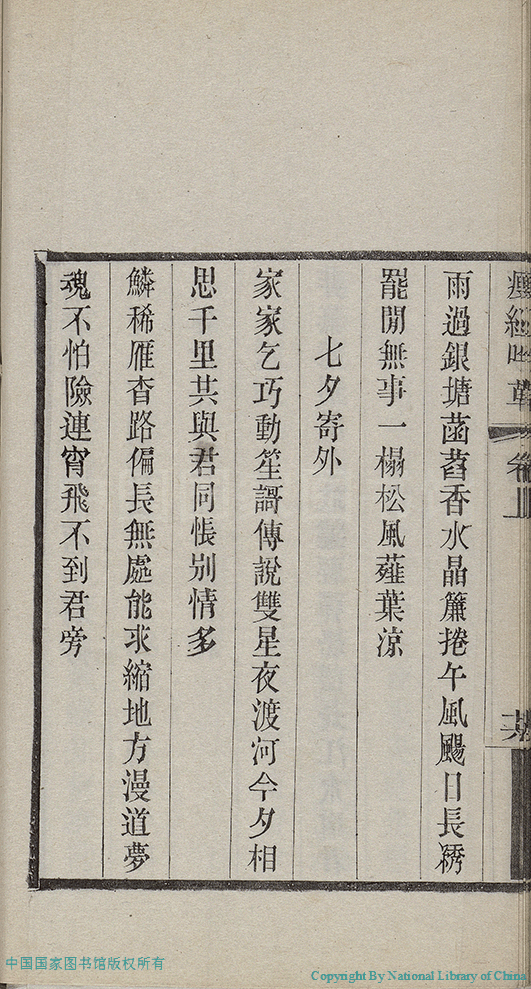 卷上
雨過銀塘菡萏香水晶簾捲午風颺日長綉
罷閒無事一榻松風薤葉涼
七夕寄外
家家乞巧動笙謌傳說雙星夜渡河今夕相
思千里共與君同悵別情多
鱗稀雁杳路偏長無處能求縮地方漫道夢
魂不怕險連宵飛不到君旁
中国国家图书馆版权所有
Copyright By National Library of China